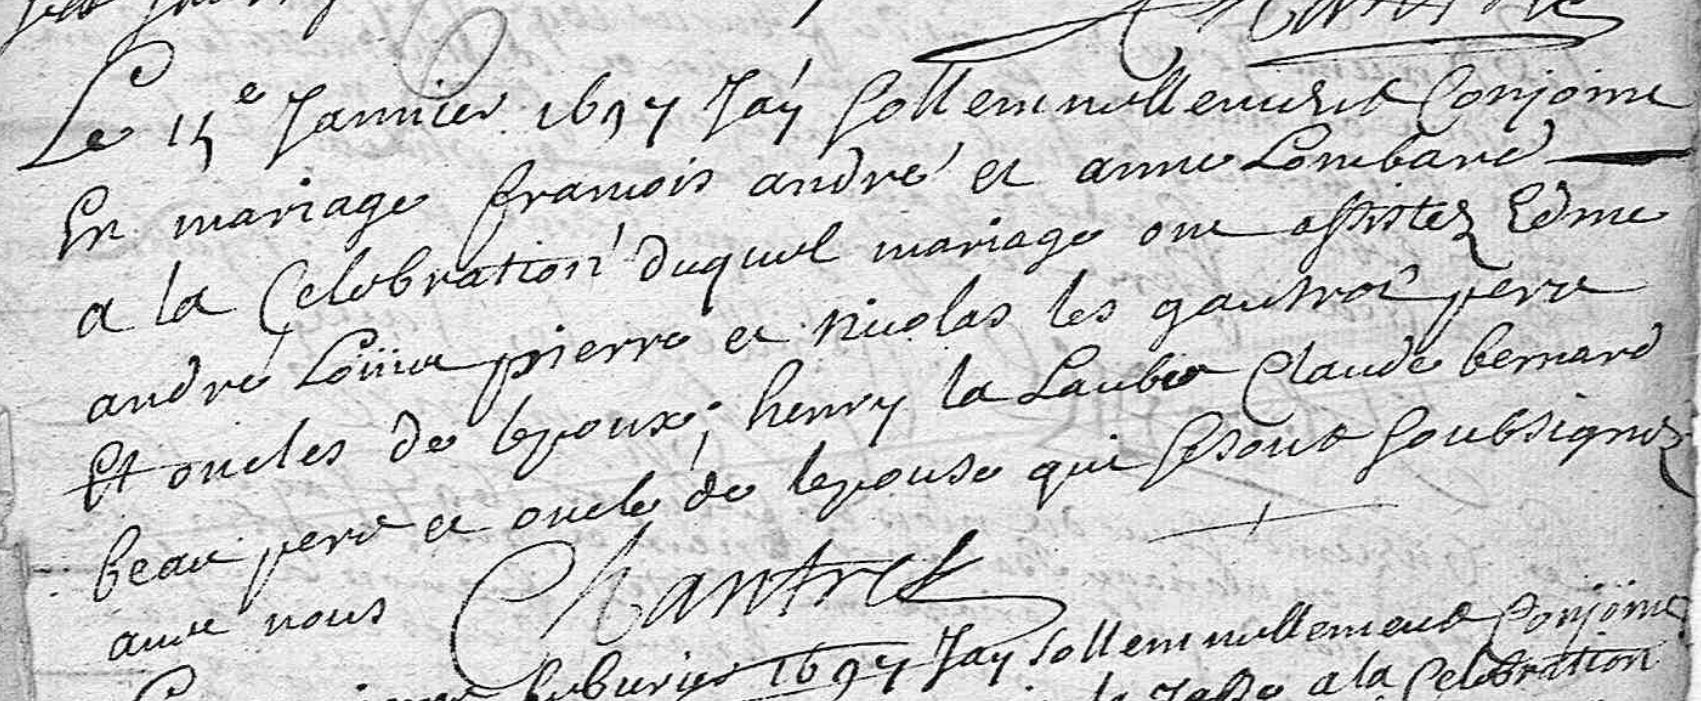 Le 15e Januier 1697 Jay sollemnellement Conjoint
En mariage francois andré et anne Lombard
a la Celebration duquel mariage ont assistez Edme
andré Loüise pierre et nicolas les gautrot pere
Et oncles de lepoux, henry la Laube Claude bernard
beau pere et oncle de lepouse qui se sont soubsignez
auec nous Chantret
feburier 1697 Jay sollemnellement Conjoint
a la Celebration